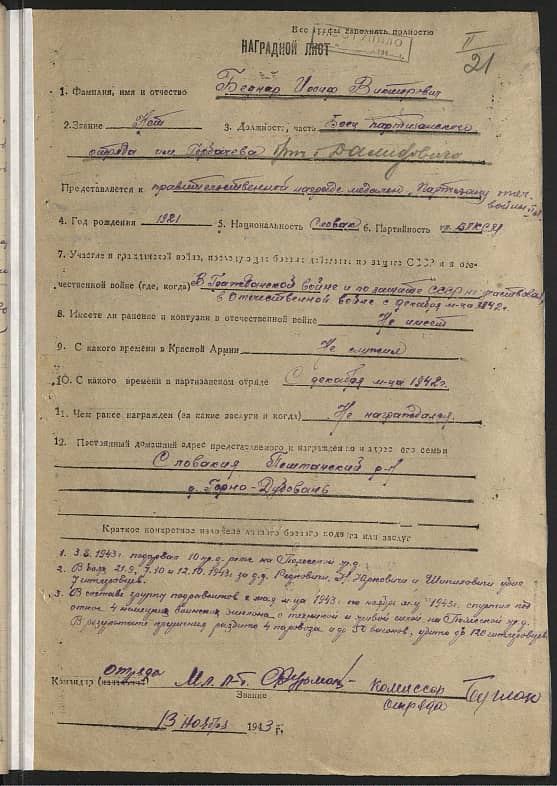 Все графы заполнять полностью
II
21
НАГРАДНОЙ ЛИСТ
1. Фамилия, имя и отчество Беднар Иосиф Викторович
2. Звание Нет 3. Должность, часть Боец партизанского
отряда им.
Представляется к правительственной награде медалью „Партизану отеч.
войны"
4. Год рождения 1921 5. Национальность Словак 6. Партийность чл. ВЛКСМ
7. Участие в гражданской войне, последующих боевых действиях по защите СССР и в оте-
чественной войне (где, когда) В Гражданской войне и по защите СССР не участвовал,
в Отечественной войне с декабря м-ца 1942 г.
8. Имеет ли ранение и контузии в отечественной войне Не имеет
9. С какого времени в Красной Армии Не служил
10. С какого времени в партизанском отряде С декабря м-ца 1942 г.
11. Чем ранее награжден (за какие заслуги и когда) Не награждался
12. Постоянный домашний адрес представляемого к награждению и адрес его семьи
Словакия р-н
д. Горно-Дубовань
Краткое конкретное изложение личного боевого подвига или заслуг
1. 3.8.1943 г. подорвал 10 на Полесской ж.д.
2. В боях 21.9, 7.10 и 12.10.1943 г. за д.д. и убил
7 гитлеровцев.
3. В составе группы подрывников с мая м-ца 1943 г. по ноябрь м-ц 1943 г. спустил под
откос 4 воинских эшелона с техникой и живой силой на Полесской ж.д.
В результате крушения разбито 4 паровоза и до вагонов, убито до 120 гитлеровцев.
Командир отряда Мл. л-т. Фурман - Комиссар
отряда
Звание
13 Ноября 1943 г.